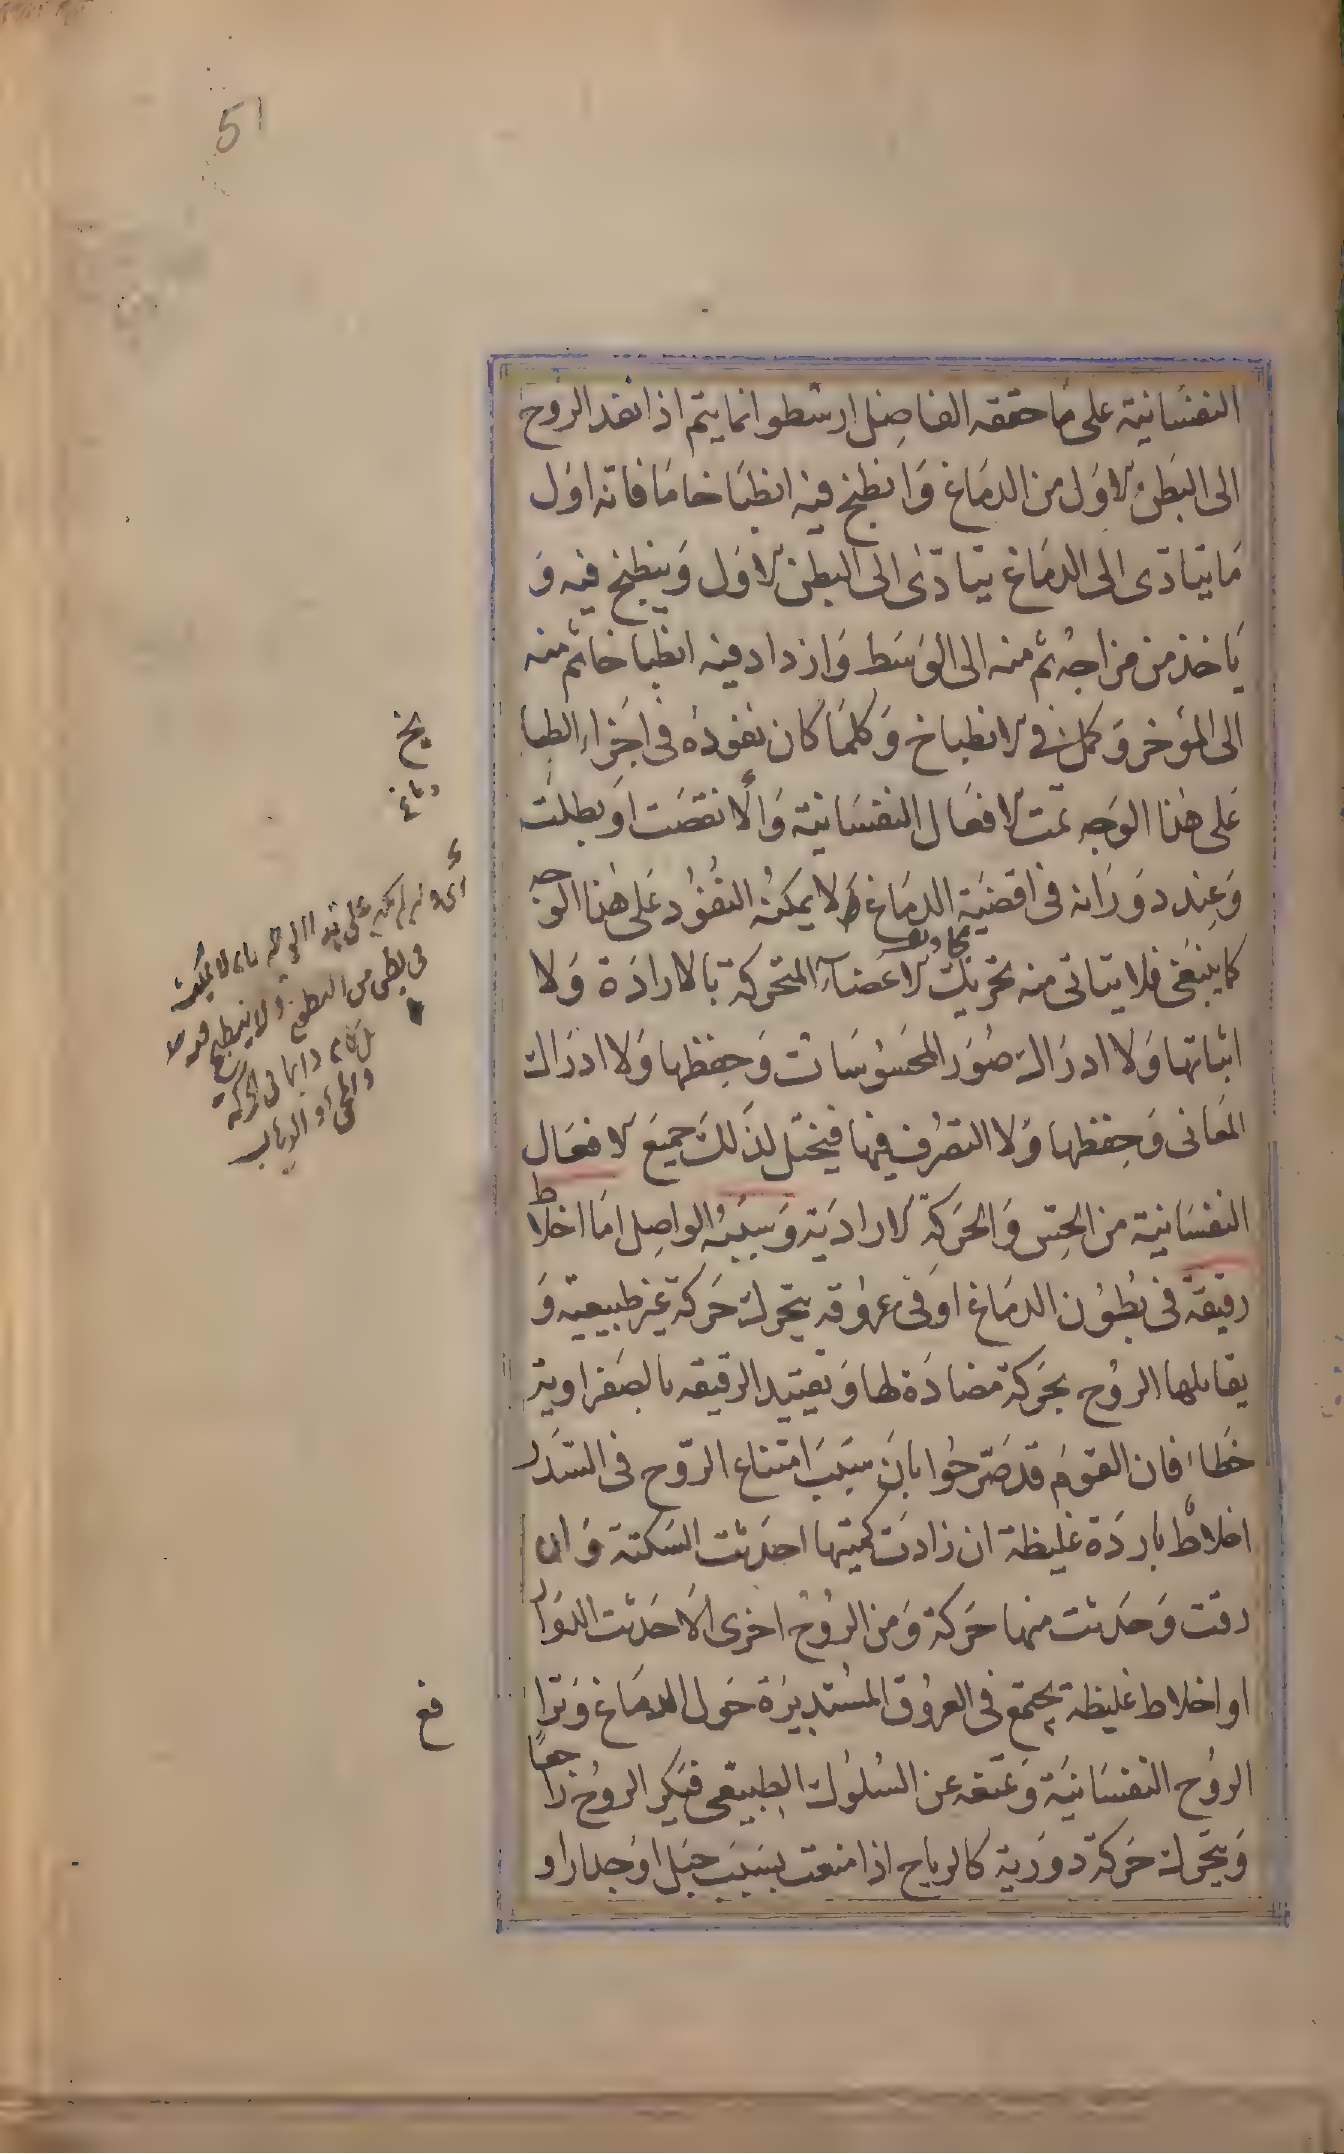 51
النفسانية على ما حققه الفاضل ارسطو انما يتم اذا نفذ الروح
الى البطن الاول من الدماغ وانطبخ فيه انطباخا ما فانه اول
ما يتادى الى الدماغ يتادى الى البطن الاول وينطبخ فيه و
ياخذ من مزاجه ثم منه الى الوسط وازداد فيه انطباخا ثم منه
الى المؤخر وكمل فى الانطباخ وكلما كان نفوذه فى اجزاء الطبا
على هذا الوجه تمت الافعال النفسانية والا نقصت او بطلت
وعند دورانه فى اقضية الدماغ لا يمكنه النفوذ على هذا الوجه
كما ينبغى فلا يتاتى منه تحريك الاعضاء المتحركة بالارادة ولا
اثباتها ولا ادراك صور المحسوسات وحفظها ولا ادراك
المعانى وحفظها ولا التصرف فيها فيختل لذلك جميع الافعال
النفسانية من الحس والحركة الارادية وسببه الواصل اما اخلاط
رقيقة فى بطون الدماغ او فى عروقه يتحرك حركة غير طبيعية و
يقابلها الروح بحركة مضادة لها وتقييد الرقيقه بالصفراوية
خطاء فان القوم قد صرحوا بان سبب امتناع الروح فى السدر
اخلاط باردة غليظة ان زادت كميتها احدثت السكتة وان
رقت وحدثت منها حركة ومن الروح اخرى الا حدثت الدوار
او اخلاط غليظة يجتمع فى العروق المستديرة حول الدماغ وترا
الروح النفسانية وتمنعه عن السلوك الطبيعى فيكر الروح راجعا
ويتحرك حركة دورية كالرياح اذا منعت بسبب جبل او جدار او
يخ
دماغ
فع